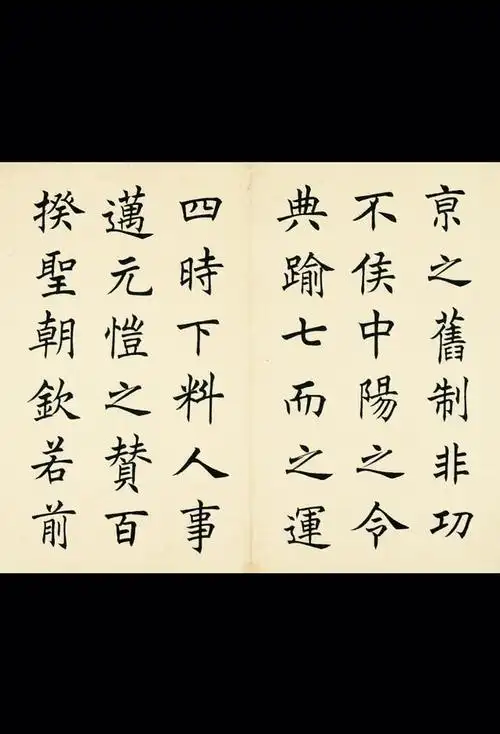 京之舊制非功
不侯中陽之令
典踰七而之運
四時下料人事
邁元愷之贊百
揆聖朝欽若前